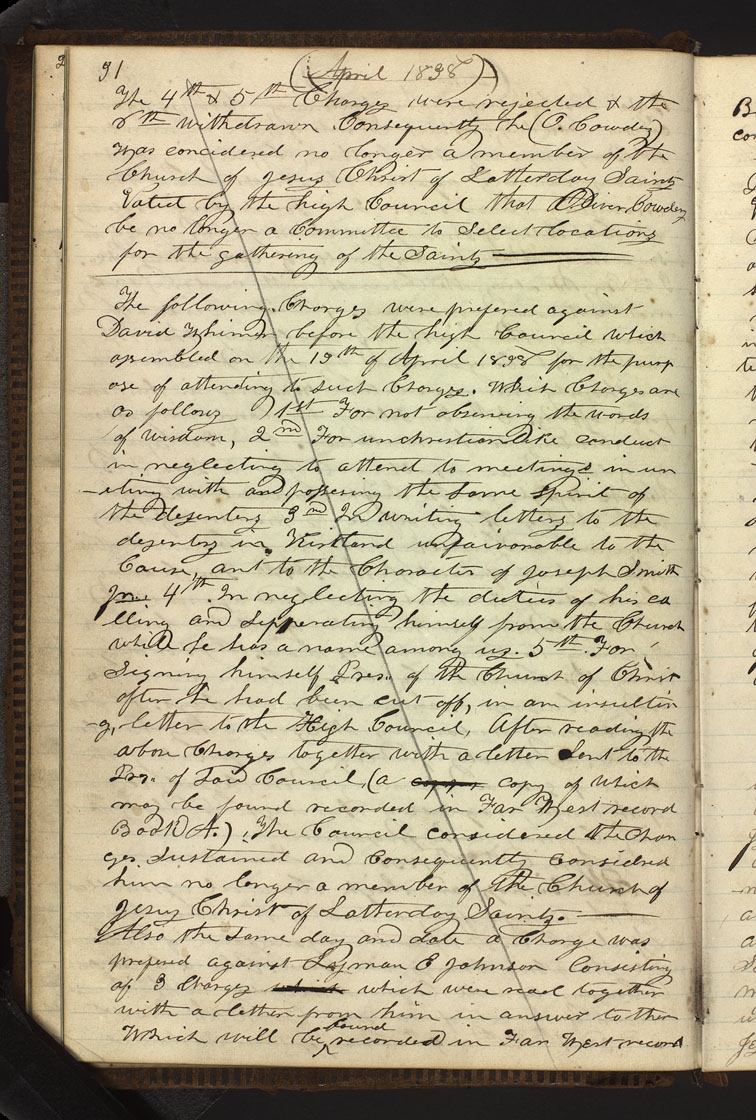 31 (April 1838)
The 4th & 5th Charges were rejected & the
6th withdrawn Consequently he (O. Cowdey)
was concidered no longer a member of the
Church of Jesus Christ of Latterday Saints
Voted by the high Council that Oliver Cowdery
be no longer a Committee to Select locations
for the gathering of the Saints
The following Charges were prefered against
David Whitmer before the high Council which
assembled on the 13th of April 1838 for the purp
ose of attending to such Charges. Which Charges are
as follows 1st For not observing the words
of wisdom, 2nd For unchristian like conduct
in neglecting to attend to meetings in un
-iting with and possesing the same spirit of
the desenters 3rd In writing letters to the
desenters in Kirtland unfaivorable to the
Cause, and to the Character of Joseph Smith
Jnr. 4th. In neglecting the duties of his ca
lling and seperating himself from the Church
while he has a name among us. 5th. For
Signing himself Pres. of the Church of Christ
after he had been cut off, in an insultin
-g, letter to the High Council, After reading the
above Charges together with a letter Sent to the
Pres. of Said Council, (a copy of which
may be found recorded in Far West record
Book A.) The Council considered the Char
ges sustained and Consequently Considered
him no longer a member of the Church of
Jesus Christ of Latterday Saints.
Also the same day and date a Charge was
prefered against Lyman E Johnson Consisting
of 3 Charges which were read together
with a letter from him in answer to them
Which will be found recorded in Far West record